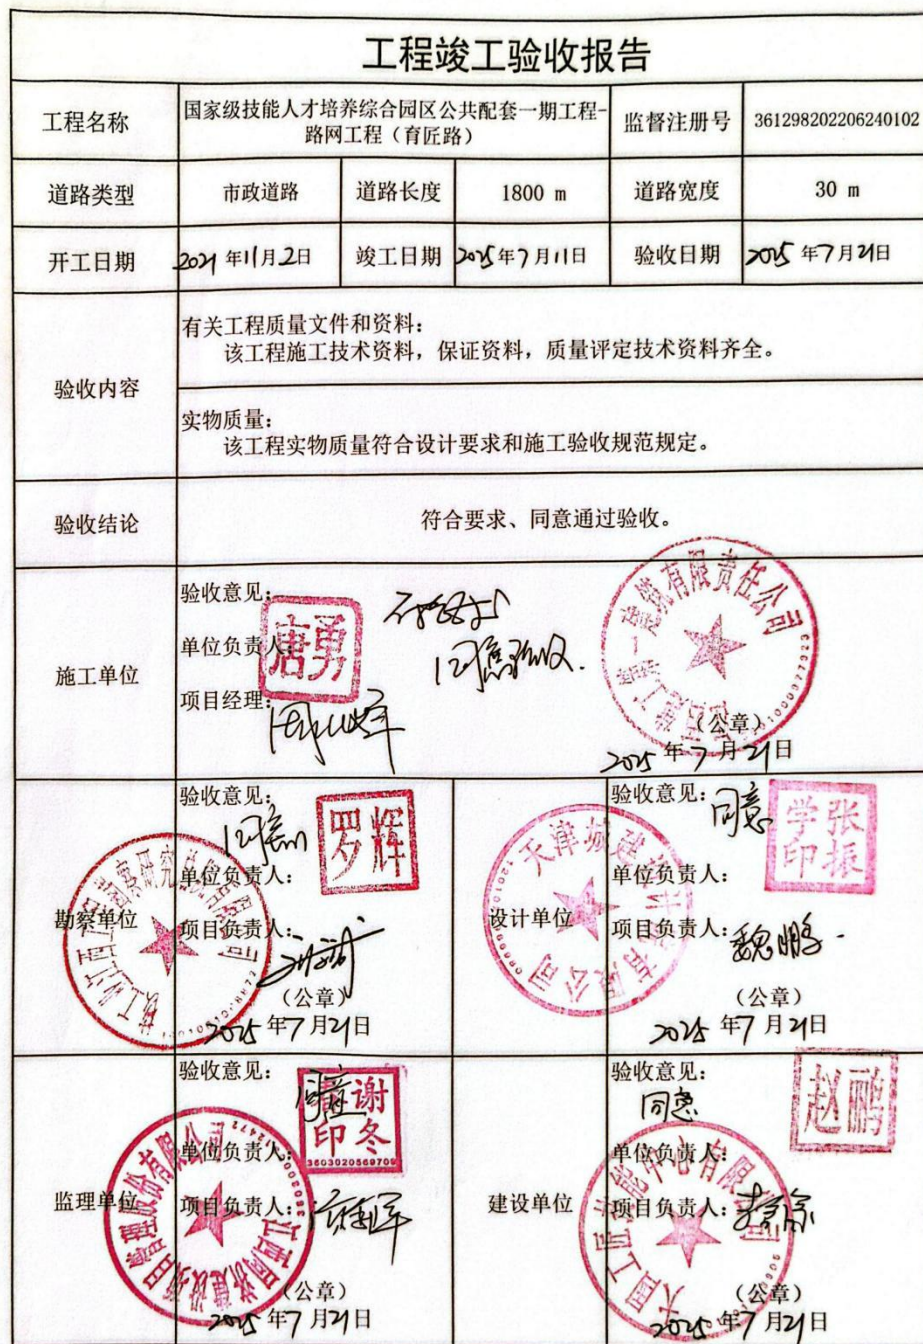 工程竣工验收报告
工程名称
国家级技能人才培养综合园区公共配套一期工程-
路网工程（育匠路）
监督注册号
361298202206240102
道路类型
市政道路
道路长度
1800 m
道路宽度
30 m
开工日期
2021 年11月2日
竣工日期
2025年7月11日
验收日期
2025 年7月21日
验收内容
有关工程质量文件和资料：
该工程施工技术资料，保证资料，质量评定技术资料齐全。
实物质量：
该工程实物质量符合设计要求和施工验收规范规定。
验收结论
符合要求、同意通过验收。
施工单位
验收意见：
同意验收.
单位负责人：
唐勇
项目经理：
建工第一建筑有限责任公司
（公章）
2025 年 7 月 21日
勘察单位
验收意见：
同意
罗辉
单位负责人：
项目负责人：
核工业江西工程勘察研究总院有限公司
（公章）
2025 年7 月21日
设计单位
验收意见：
同意
张振学印
单位负责人：
项目负责人：
魏鹏
天津城建设计院有限公司
（公章）
2025 年7 月21日
监理单位
验收意见：
同意
谢冬
印
3603020569709
单位负责人：
项目负责人：
建设项目管理股份有限公司
（公章）
2025 年7 月21日
建设单位
验收意见：
同意
赵鹏
单位负责人：
项目负责人：
大国工匠技能中心有限公司
（公章）
2025 年7 月21日